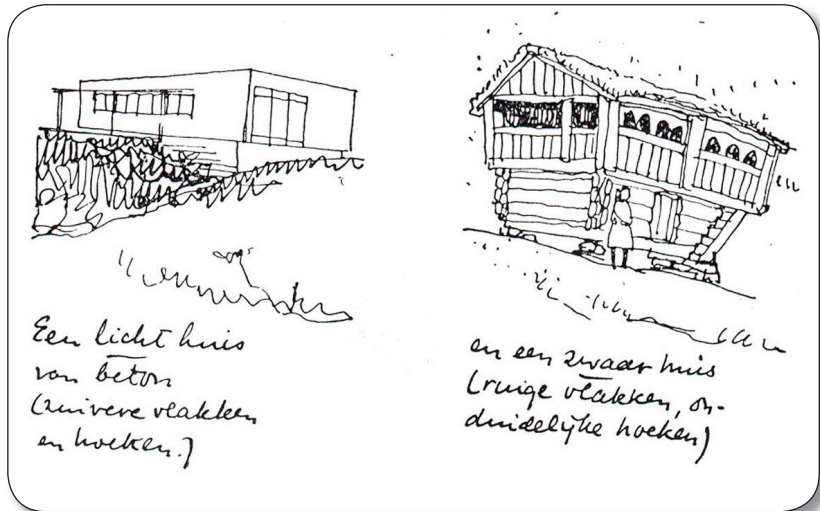 Een licht huis
van beton
(zuivere vlakken
en hoeken.)
en een zwaar huis
(ruige vlakken, on-
duidelijke hoeken)